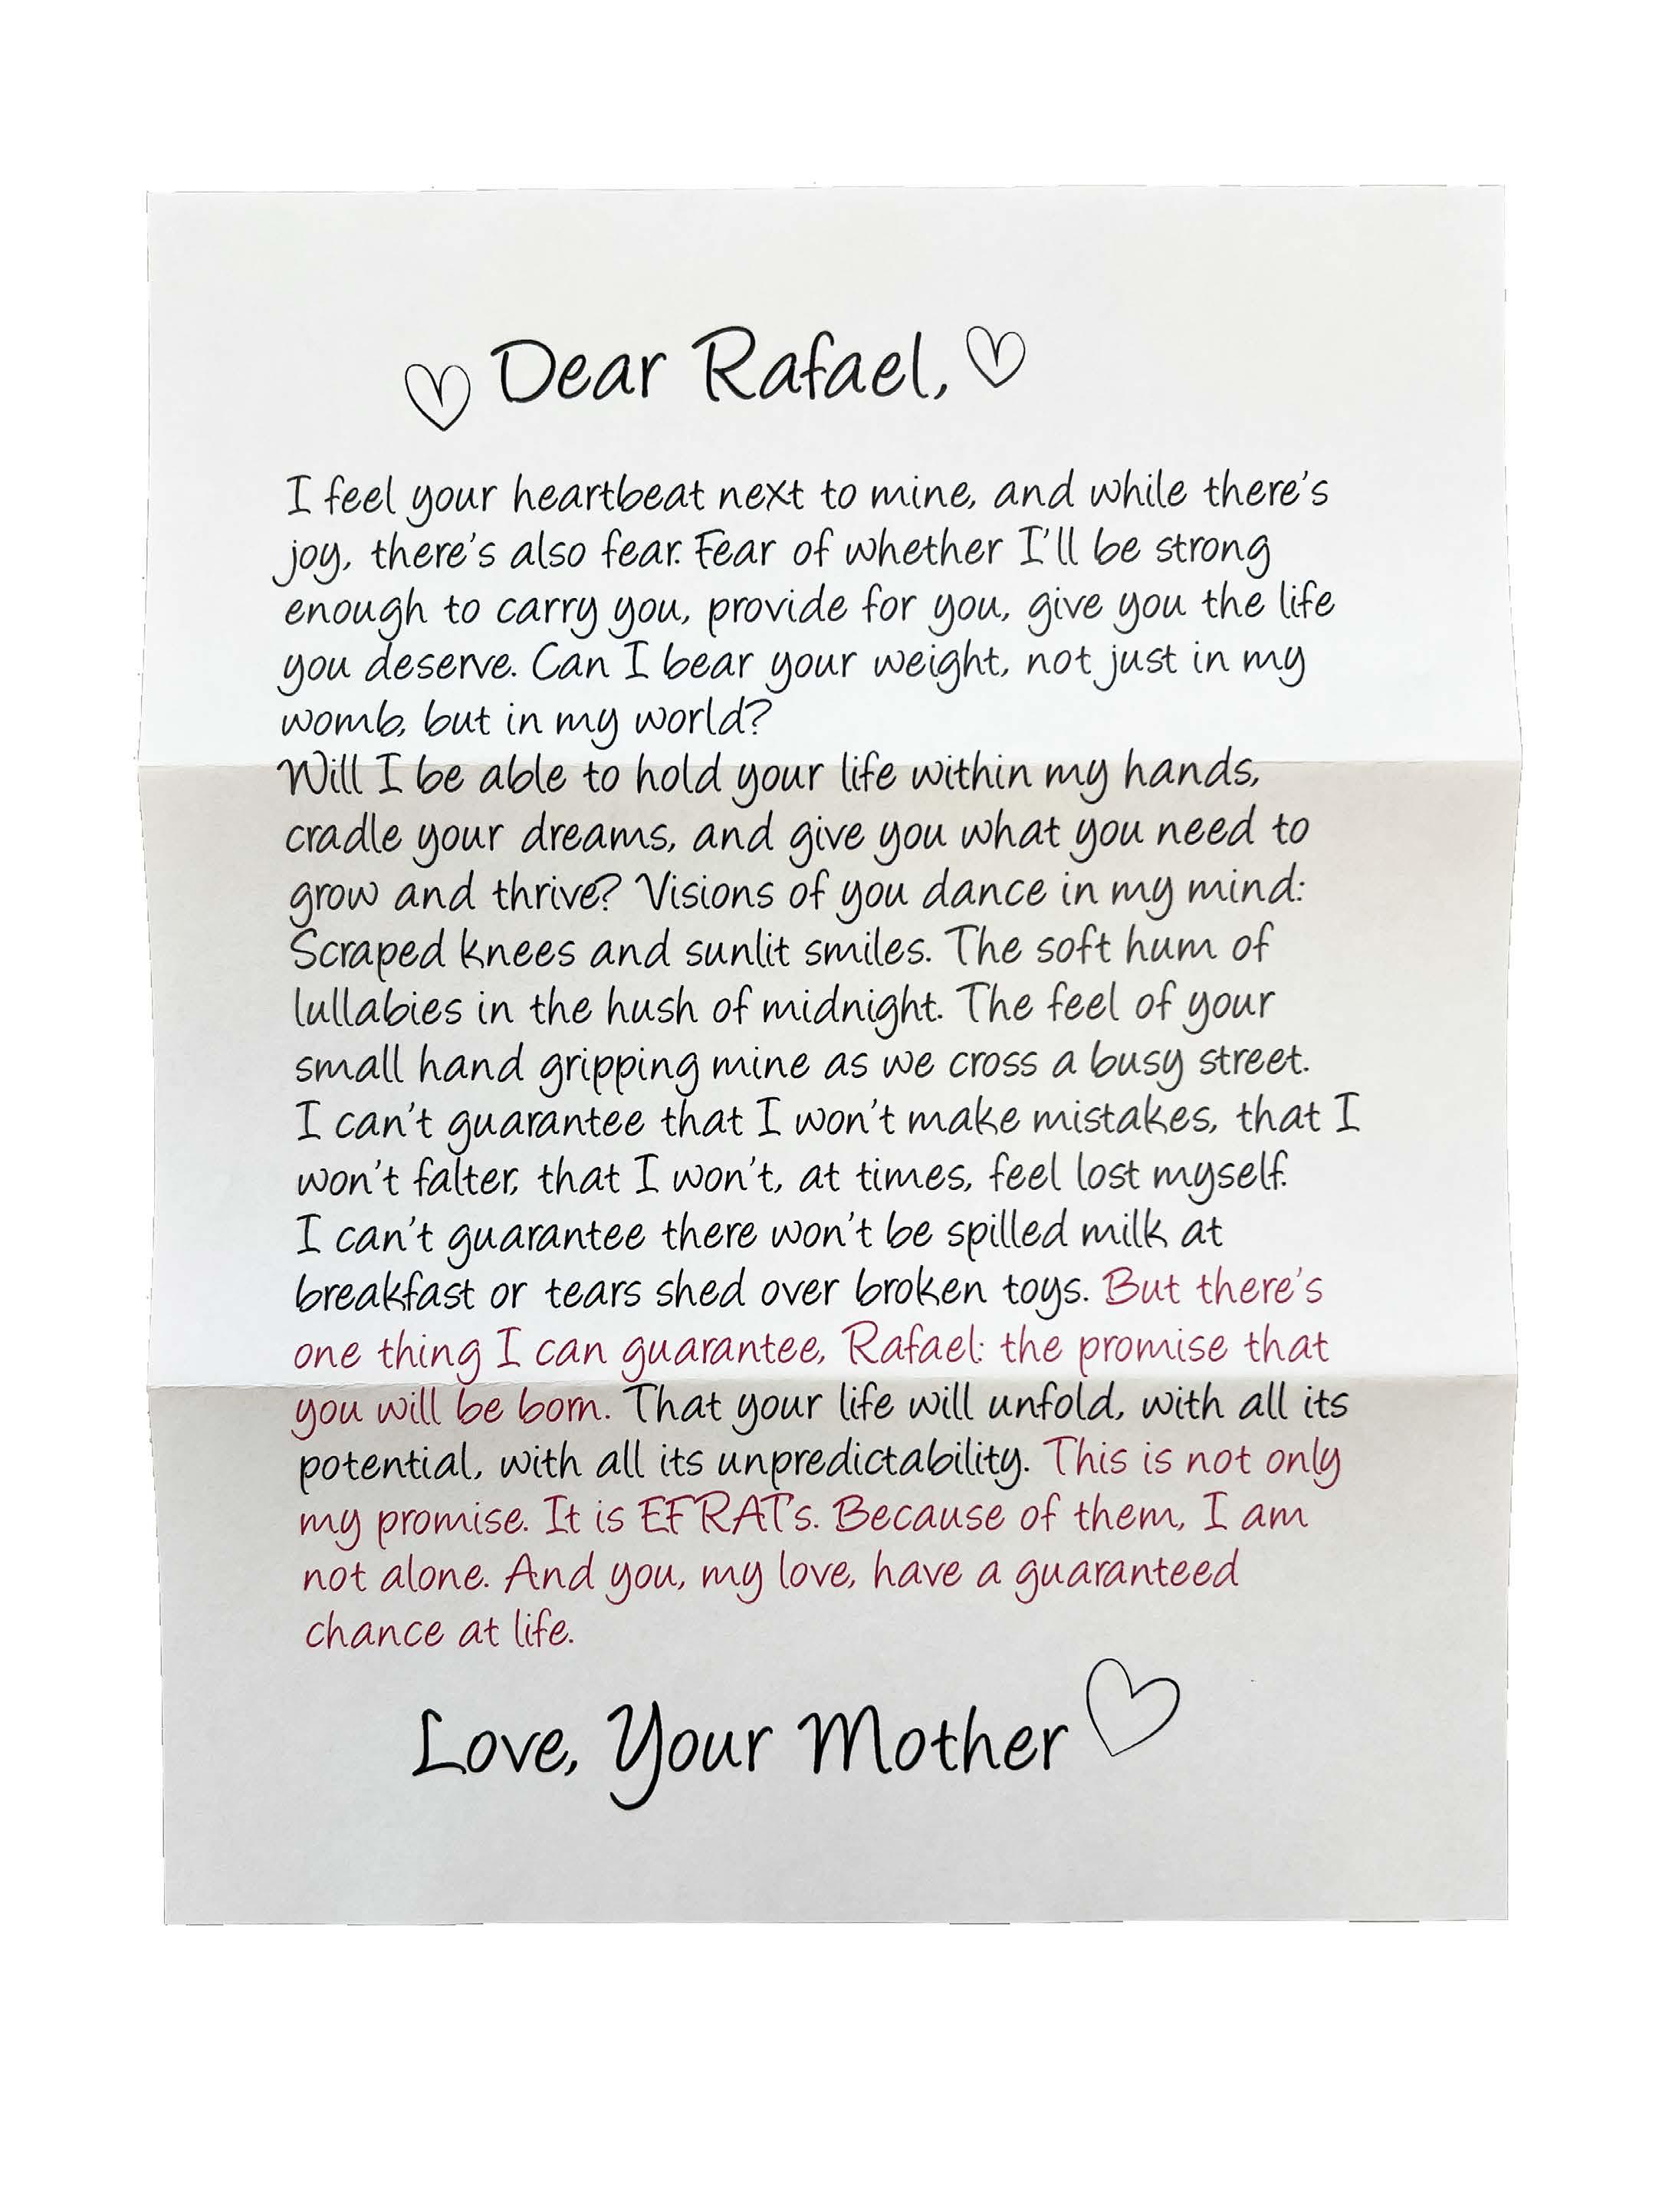 Dear Rafael,
I feel your heartbeat next to mine, and while there's
joy, there's also fear. Fear of whether I'll be strong
enough to carry you, provide for you, give you the life
you deserve. Can I bear your weight, not just in my
womb, but in my world?
Will I be able to hold your life within my hands,
cradle your dreams, and give you what you need to
grow and thrive? Visions of you dance in my mind:
Scraped knees and sunlit smiles. The soft hum of
lullabies in the hush of midnight. The feel of your
small hand gripping mine as we cross a busy street.
I can't guarantee that I won't make mistakes, that I
won't falter, that I won't, at times, feel lost myself.
I can't guarantee there won't be spilled milk at
breakfast or tears shed over broken toys. But there's
one thing I can guarantee, Rafael: the promise that
you will be born. That your life will unfold, with all its
potential, with all its unpredictability. This is not only
my promise. It is EFRAT's. Because of them, I am
not alone. And you, my love, have a guaranteed
chance at life.
Love, Your Mother